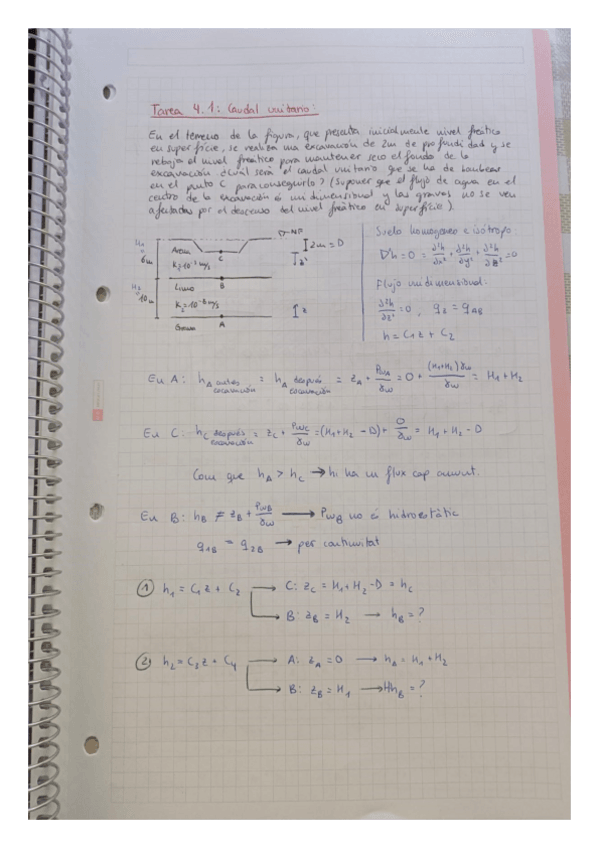 Tarea 4.1: Caudal unitario:
En el terreno de la figura, que presenta inicialmente nivel freático
en superficie, se realiza una excavación de 2m de profundidad y se
rebaja el nivel freático para mantener seco el fondo de la
excavación ¿Cuál será el caudal unitario que se ha de bombear
en el punto C para conseguirlo? (Suponer que el flujo de agua en el
centro de la excavación es unidimensional y las gravas no se ven
afectadas por el descenso del nivel freático en superficie).
NF
H₁ = 6m
Arena
C
2m = D
K₁=10⁻⁵ m/s
B
H₂ = 10m
Limo
K₂=10⁻⁸ m/s
z
A
Grava
Suelo homogéneo e isótropo
∇²h = 0 = ∂²h/∂x² + ∂²h/∂y² + ∂²h/∂z² = 0
Flujo unidimensional:
∂²h/∂z² = 0
h = C₁z + C₂
En A: hA antes excavación = hA después excavación = zA + PwA/γw = 0 + (H₁+H₂)γw/γw = H₁ + H₂
En C: hC después excavación = zC + PwC/γw = (H₁+H₂-D) + 0/γw = H₁ + H₂ - D
Com que hA > hC → hi ha un flux cap amunt.
En B: hB ≠ zB + PwB/γw → PwB no é hidroestàtic
q1B = q2B → per continuitat
① h₁ = C₁z + C₂ → C: zC = H₁+H₂-D = hC
→ B: zB = H₂ → hB = ?
② h₂ = C₃z + C₄ → A: zA = 0 → hA = H₁+H₂
→ B: zB = H₁ → hB = ?